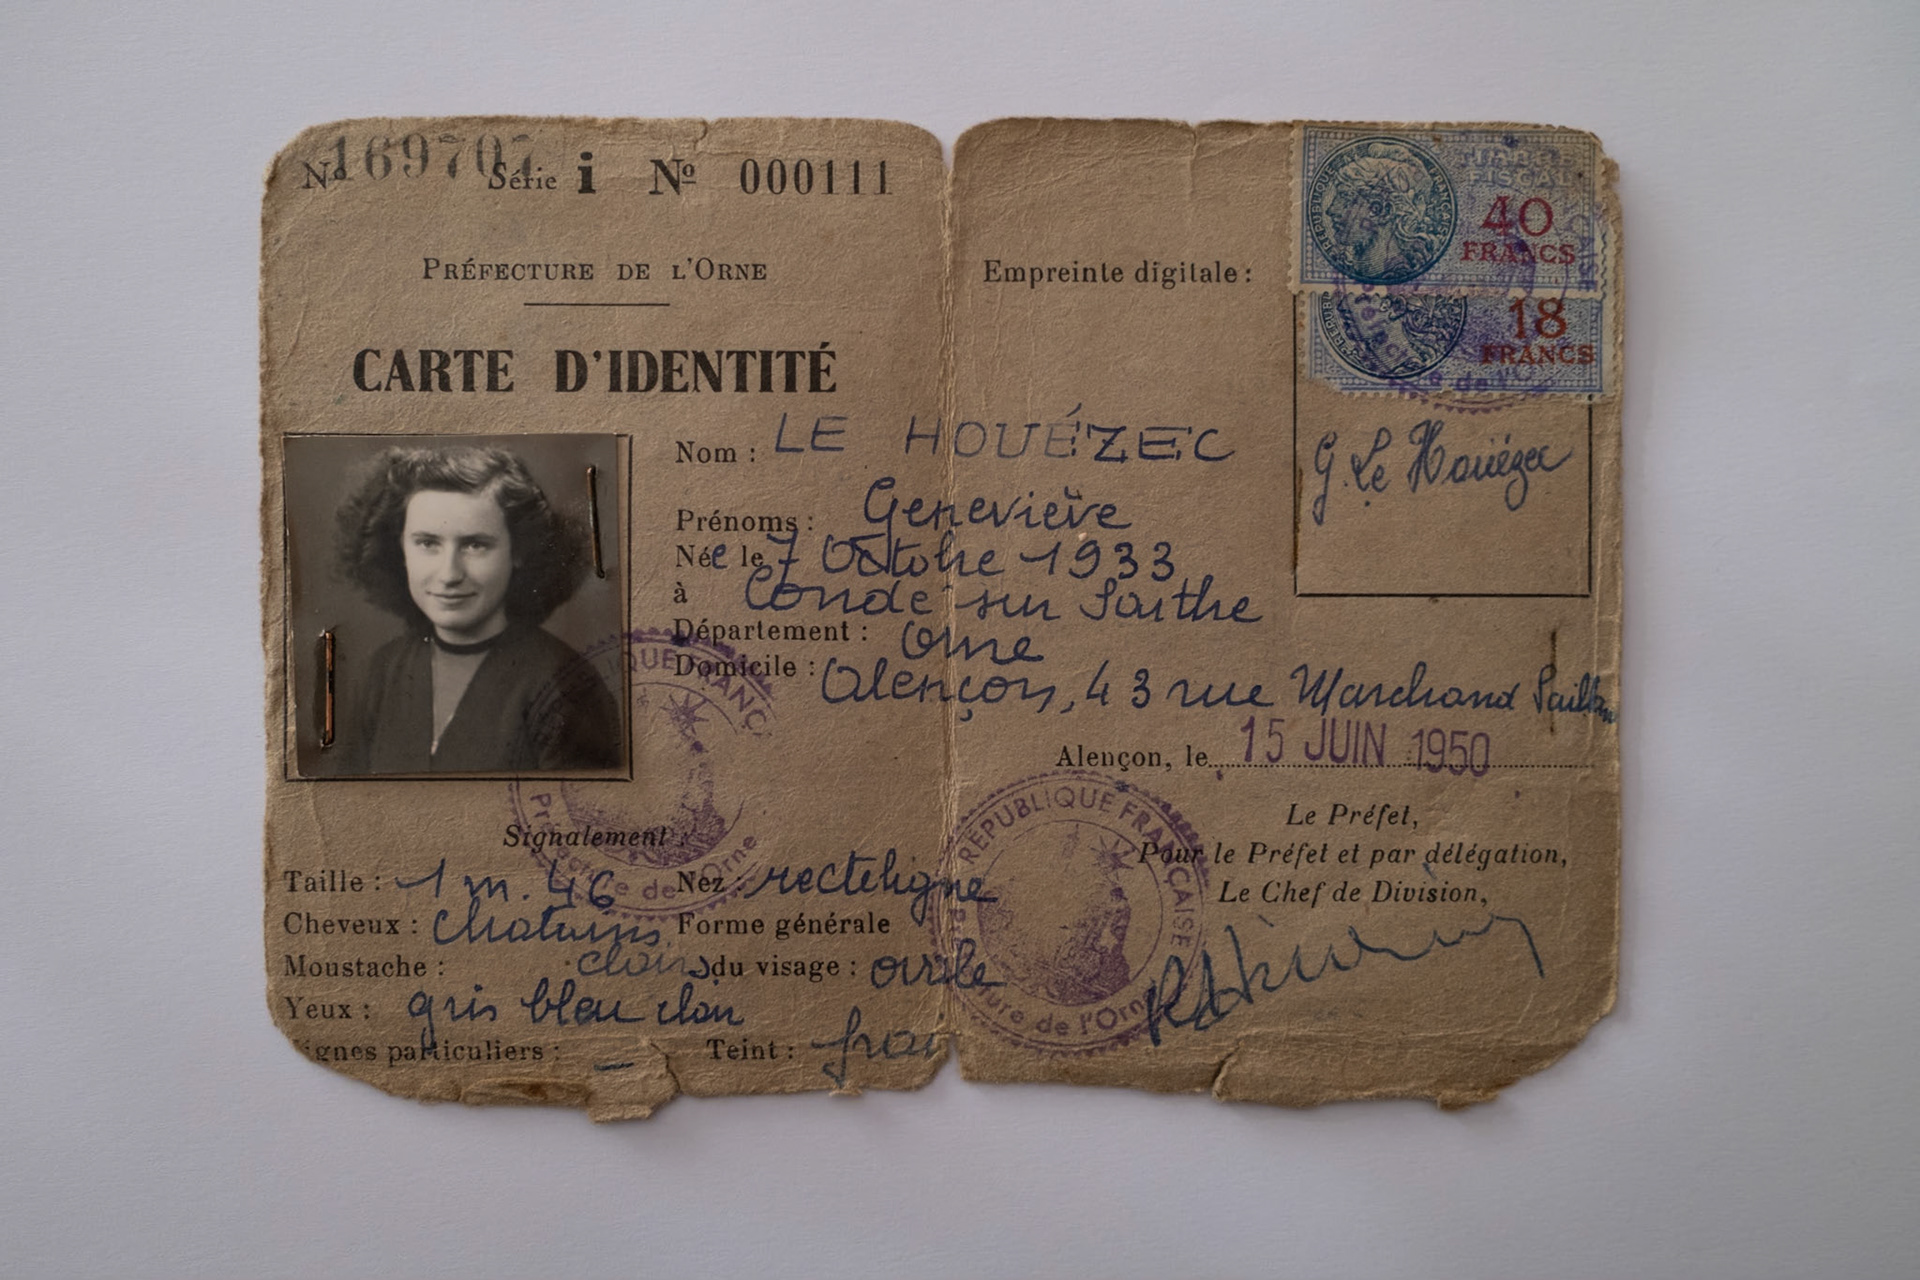 Nº 169707 Série i Nº 000111
PRÉFECTURE DE L'ORNE
CARTE D'IDENTITÉ
Nom : LE HOUÉZEC
Prénoms : Geneviève
Née le 7 Octobre 1933
à Condé sur Sarthe
Département : Orne
Domicile : Alençon, 43 rue Marchand
Signalement :
Taille : 1 m. 46
Cheveux : Chatains clairs
Moustache :
Yeux : gris bleu clair
Signes particuliers : —
Nez : rectiligne
Forme générale
du visage : ovale
Teint : frai
Empreinte digitale :
TIMBRE FISCAL
RÉPUBLIQUE FRANÇAISE
40
FRANCS
18
FRANCS
G. Le Houézec
Alençon, le 15 JUIN 1950
Le Préfet,
Pour le Préfet et par délégation,
Le Chef de Division,
RÉPUBLIQUE FRANÇAISE
Préfecture de l'Orne